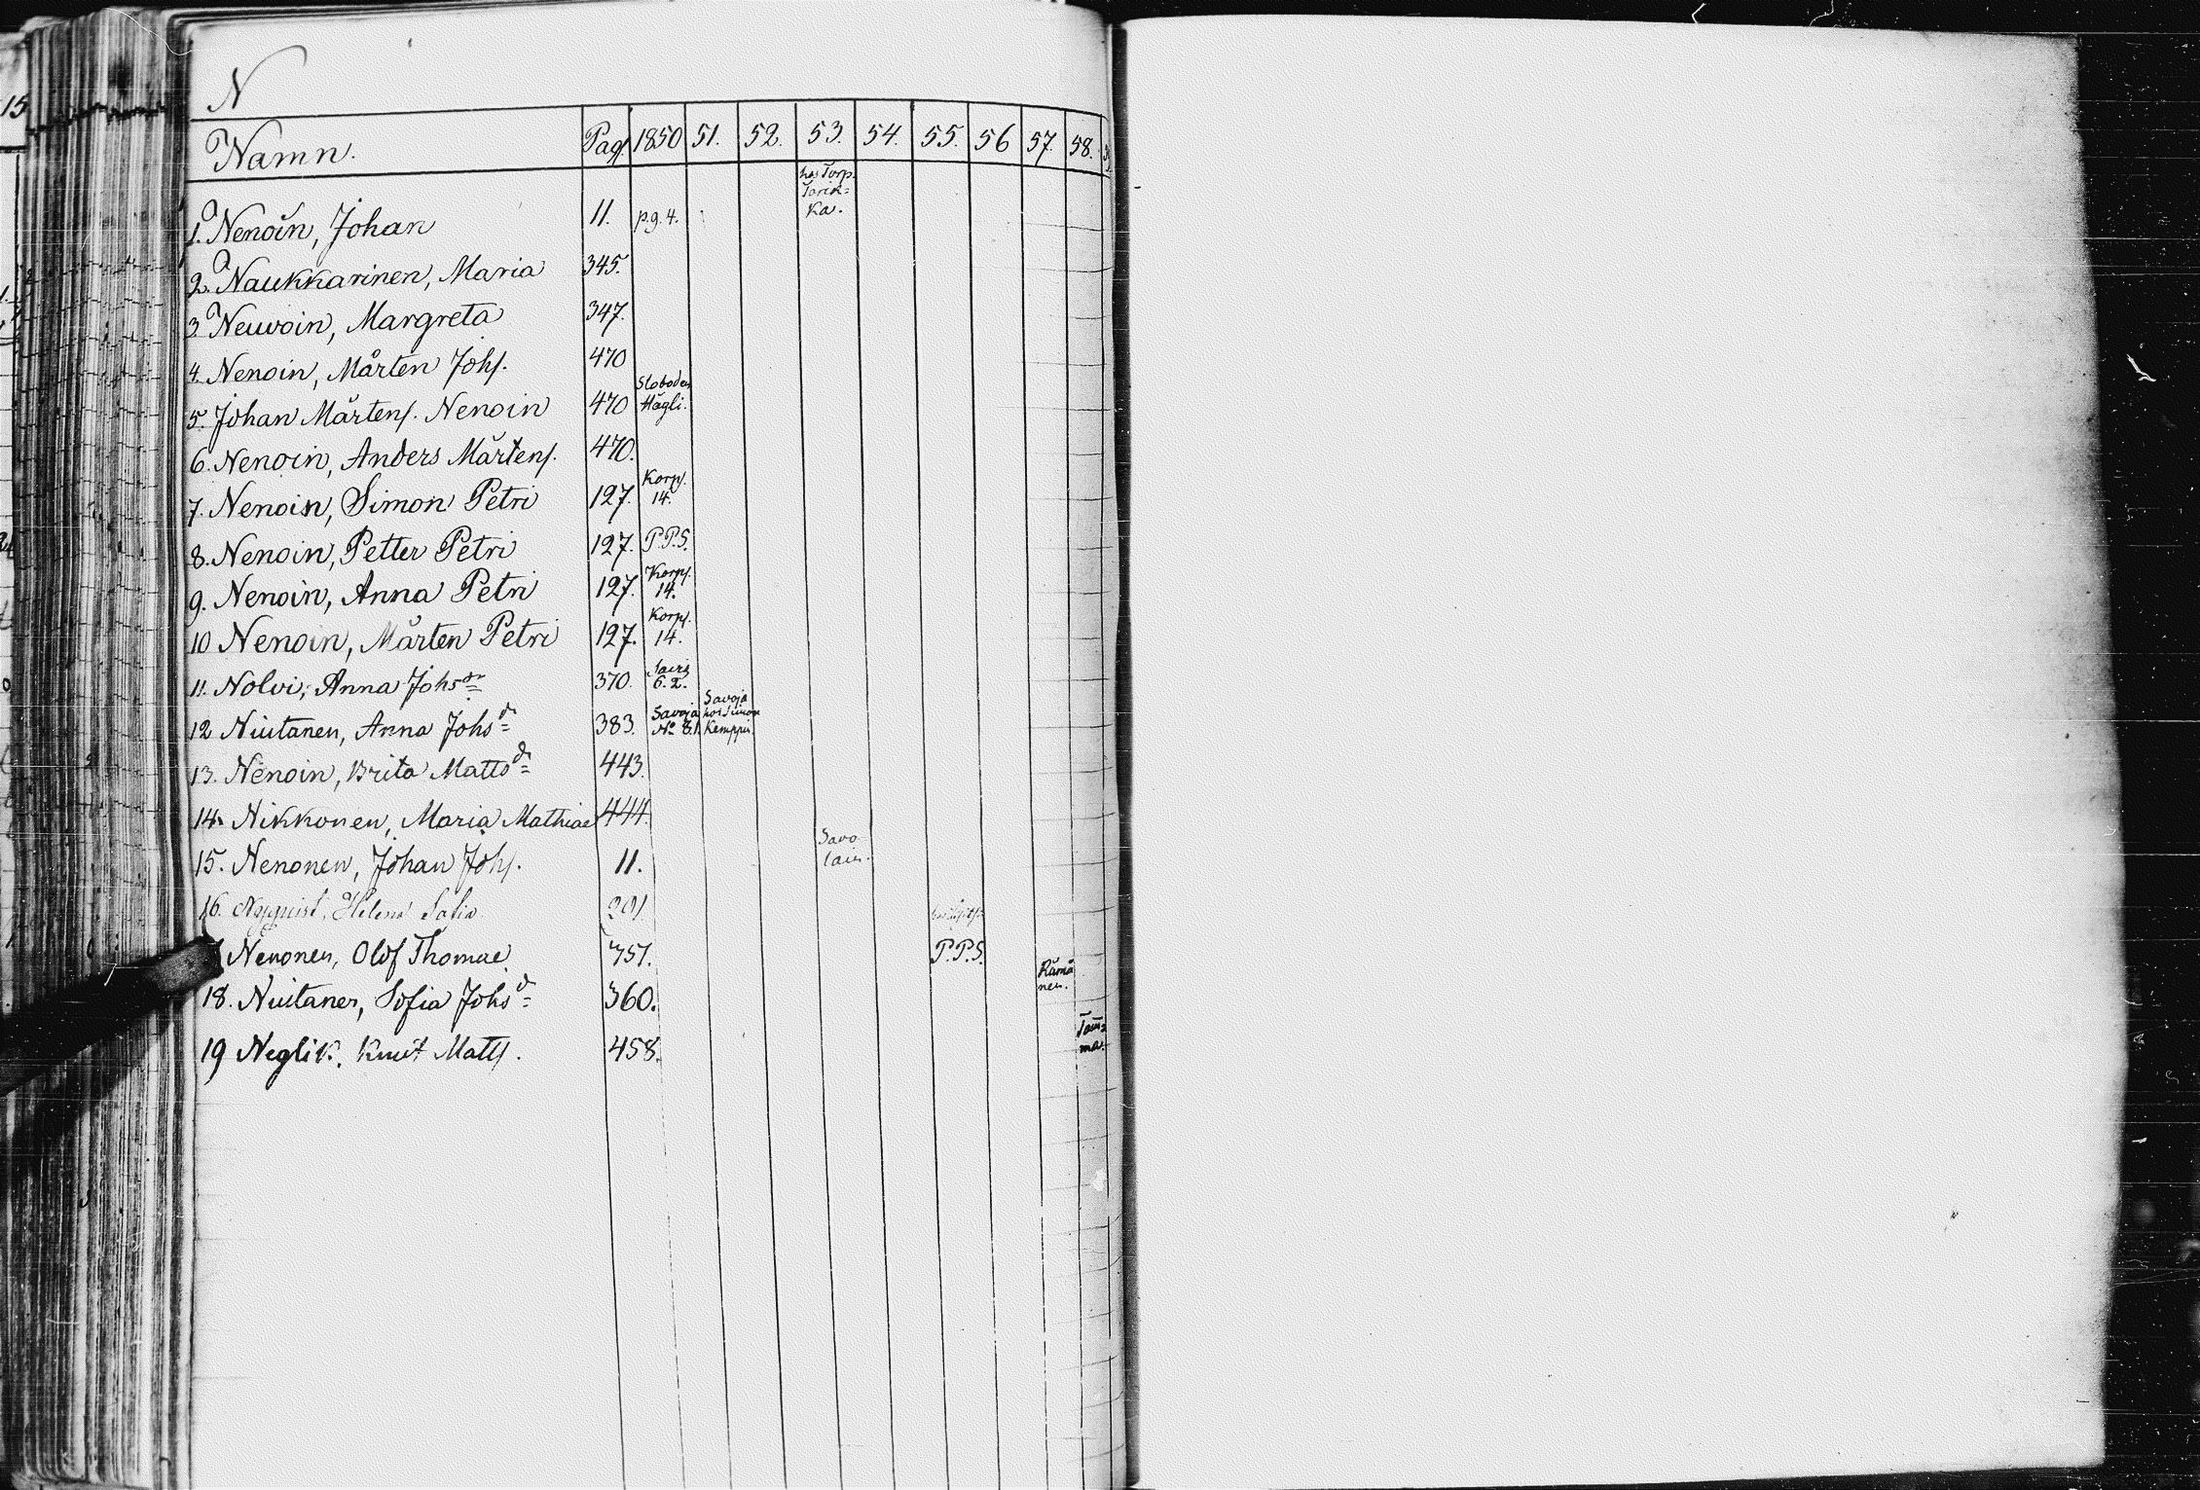 N
Namn. Pag. 1850 51. 52. 53. 54. 55. 56 57. 58.
hos Torp.
Tarik=
ka.
1. Nenoin, Johan 11. p.g. 4.
2. Naukkarinen, Maria 345.
3. Neuvoin, Margreta 347.
4. Nenoin, Mårten Johs. 470
Sloboden
5. Johan Mårtens. Nenoin 470 Hägli.
6. Nenoin, Anders Mårtens. 470.
Korps.
7. Nenoin, Simon Petri 127. 14.
8. Nenoin, Petter Petri 127. P.P.S.
Korps.
9. Nenoin, Anna Petri 127. 14.
Korps.
10 Nenoin, Mårten Petri 127. 14.
11. Nolvi, Anna Johsdr 370. 6.2.
Savoja
12 Niutanen, Anna Johsd 383. Savoja hos Simon
No 8.1. Kemppi.
13. Nenoin, Brita Mattsd 443.
14. Nikkonen, Maria Mathiae 444.
Savo
15. Nenonen, Johan Johs. 11. lain.
16. Nyquist, Helena Sofia 201
Nenonen, Olof Thomae 351. P.P.S.
Rämö
nen.
18. Niutanen, Sofia Johsd 360.
19 Neglik, Knut Matts. 458. ma.
15